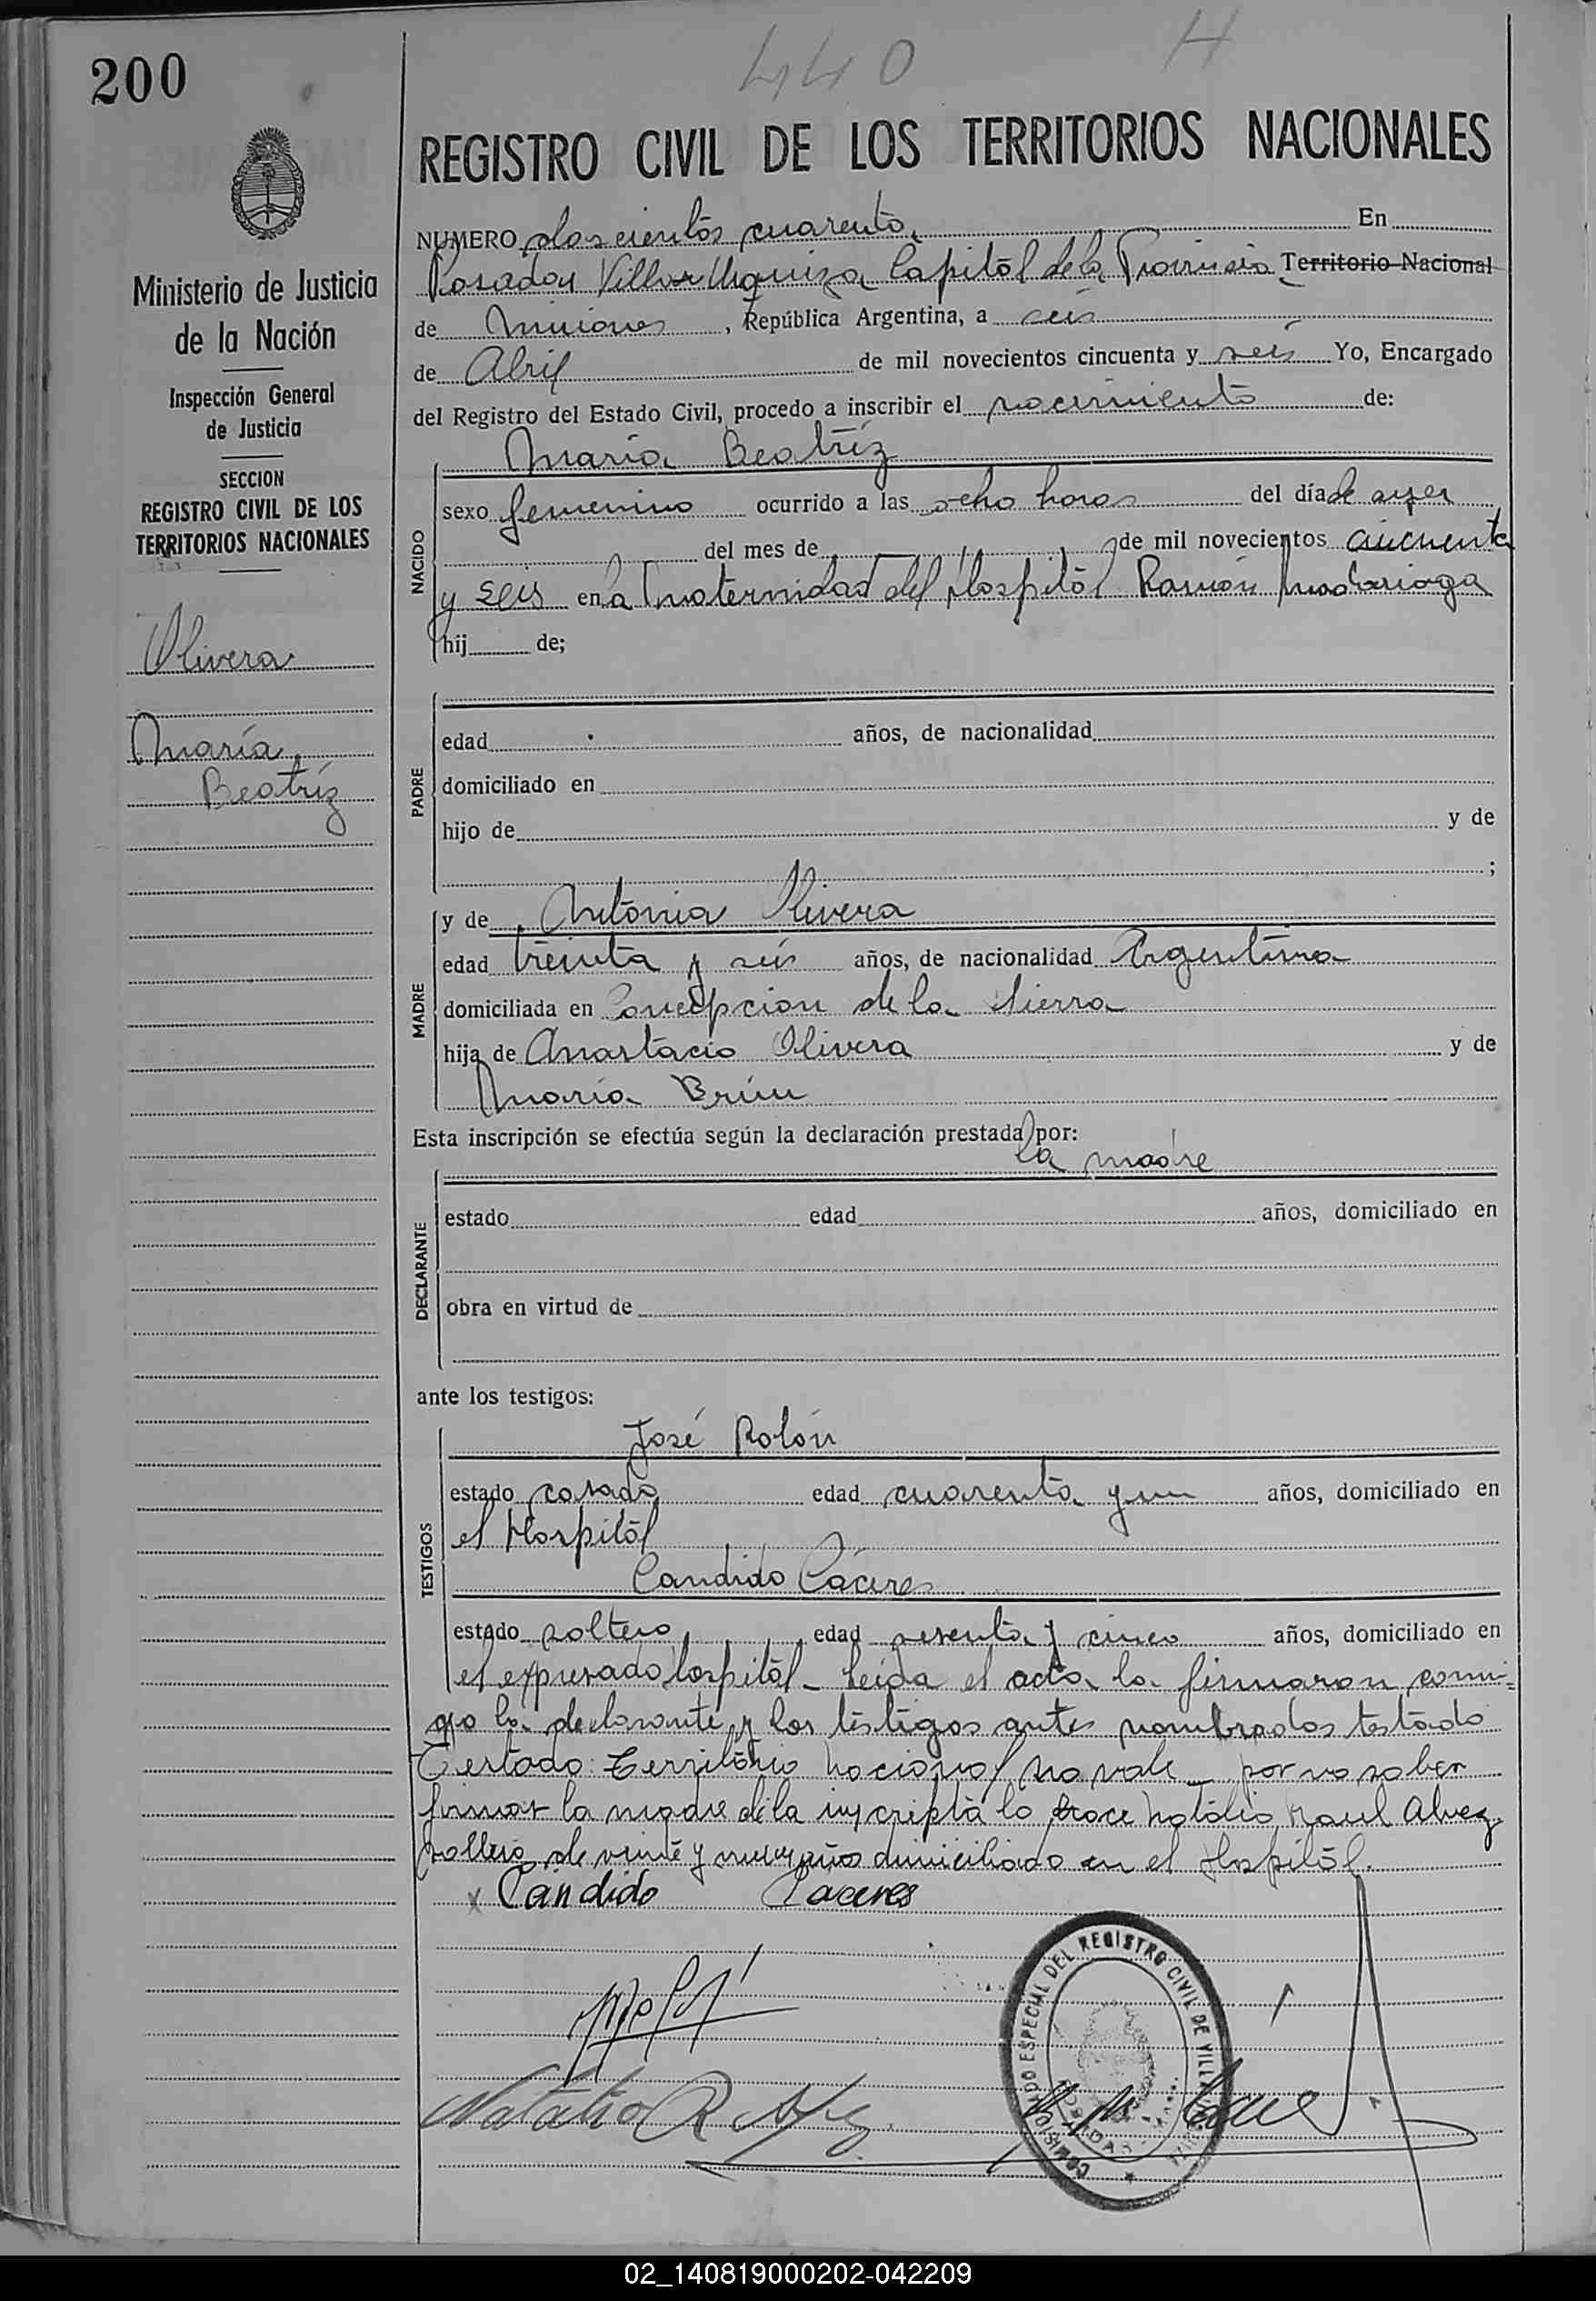 440 H
200
REGISTRO CIVIL DE LOS TERRITORIOS NACIONALES
Ministerio de Justicia
de la Nación
Inspección General
de Justicia
SECCION
REGISTRO CIVIL DE LOS
TERRITORIOS NACIONALES
Olivera
María
Beatríz
NUMERO doscientos cuarenta En
Posadas Villa Urquiza Capital de la Provincia Territorio Nacional
de Misiones, República Argentina, a seis
de Abril de mil novecientos cincuenta y seis Yo, Encargado
del Registro del Estado Civil, procedo a inscribir el nacimiento de:
María Beatríz
NACIDO
sexo femenino ocurrido a las ocho horas del día de ayer
del mes de de mil novecientos cincuenta
y seis en la Maternidad del Hospital Ramón Madariaga
hij de;
PADRE
edad años, de nacionalidad
domiciliado en
hijo de y de
;
MADRE
y de Antonia Olivera
edad treinta y seis años, de nacionalidad Argentina
domiciliada en Concepcion de la Sierra
hija de Anastacio Olivera y de
María Brun
Esta inscripción se efectúa según la declaración prestada por:
la madre
DECLARANTE
estado edad años, domiciliado en
obra en virtud de
ante los testigos:
TESTIGOS
José Rolón
estado casado edad cuarenta y un años, domiciliado en
el Hospital
Candido Cáceres
estado soltero edad sesenta y cinco años, domiciliado en
el expresado hospital - Leida el acta la firmaron conmi=
go la declarante y los testigos antes nombrados testado
Testado: Territorio nacional no vale - por no saber
firmar la madre de la inscripta lo hace Natalio Raul Alvez
soltero de veinte y nueve años domiciliado en el Hospital.
x Candido Caceres
Natalio R Alvez
COMISIONADO ESPECIAL DEL REGISTRO CIVIL DE VILLA URQUIZA
POSADAS
02_140819000202-042209